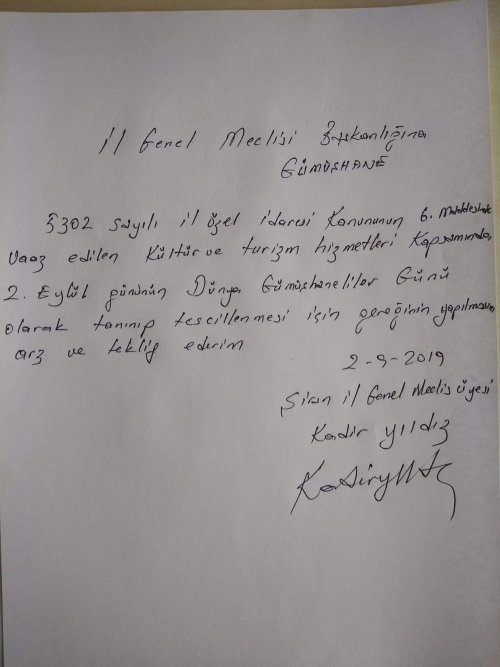 İl Genel Meclisi Başkanlığına
GÜMÜŞHANE
5302 sayılı il özel idaresi Kanununun 6. Maddesinde
Vaaz edilen Kültür ve turizm hizmetleri Kapsamında,
2. Eylül gününün Dünya Gümüşhaneliler Günü
olarak tanınıp tescillenmesi için gereğinin yapılmasını
arz ve teklif ederim
2-9-2019
Şiran il Genel Meclis üyesi
Kadir yıldız